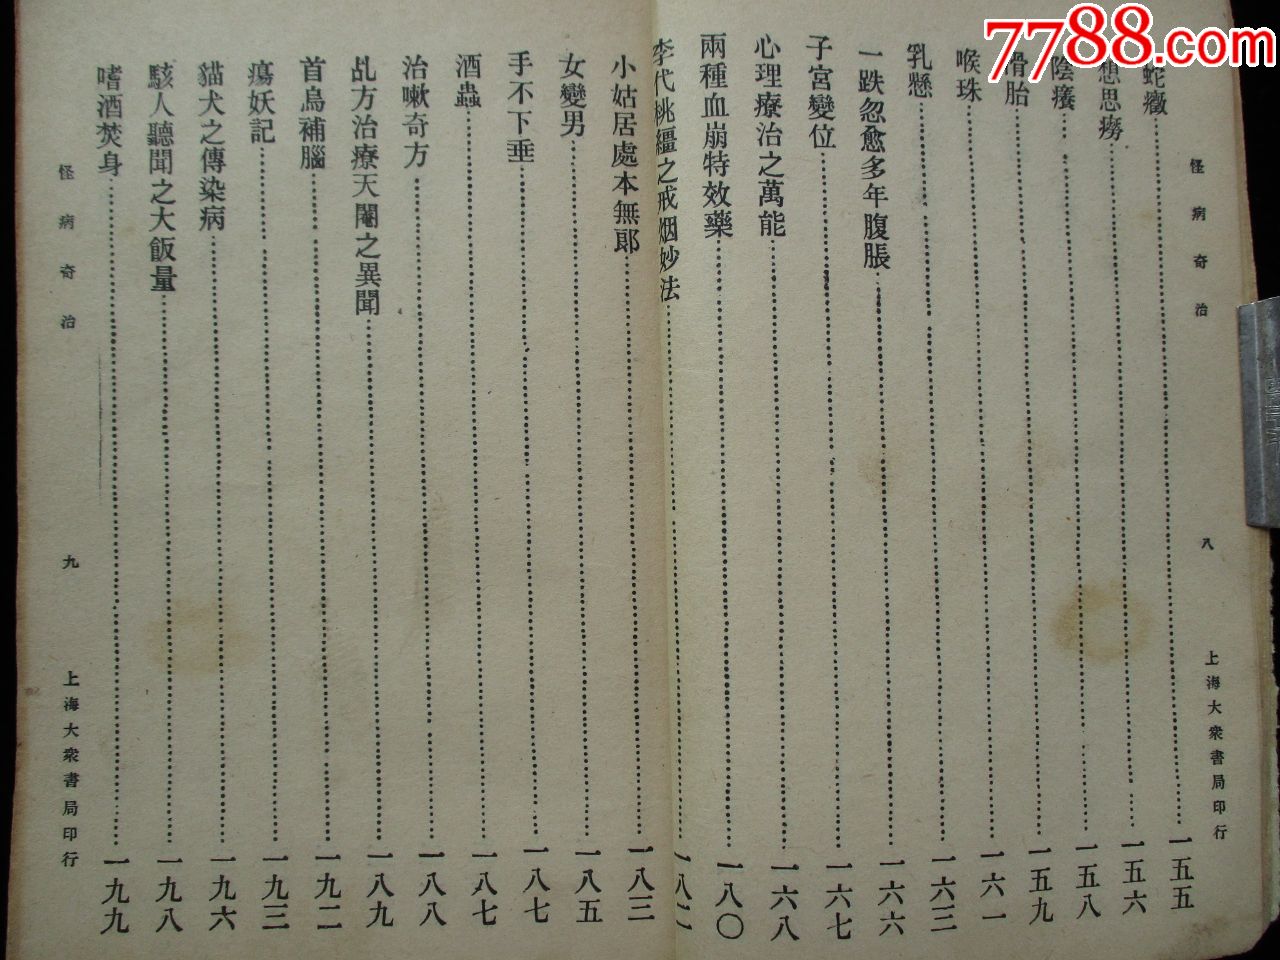 7788.com
怪病奇治
八
上海大衆書局印行
蛇癥……一五五
想思癆……一五六
陰癢……一五八
滑胎……一五九
喉珠……一六一
乳懸……一六三
一跌忽愈多年腹脹……一六六
子宮變位……一六七
心理療治之萬能……一六八
兩種血崩特效藥……一八〇
李代桃殭之戒烟妙法……一八二
小姑居處本無郞……一八三
女變男……一八五
手不下垂……一八七
酒蟲……一八七
治嗽奇方……一八八
乩方治療天閹之異聞……一八九
首烏補腦……一九二
瘍妖記……一九三
貓犬之傳染病……一九六
駭人聽聞之大飯量……一九八
嗜酒焚身……一九九
怪病奇治
九
上海大衆書局印行